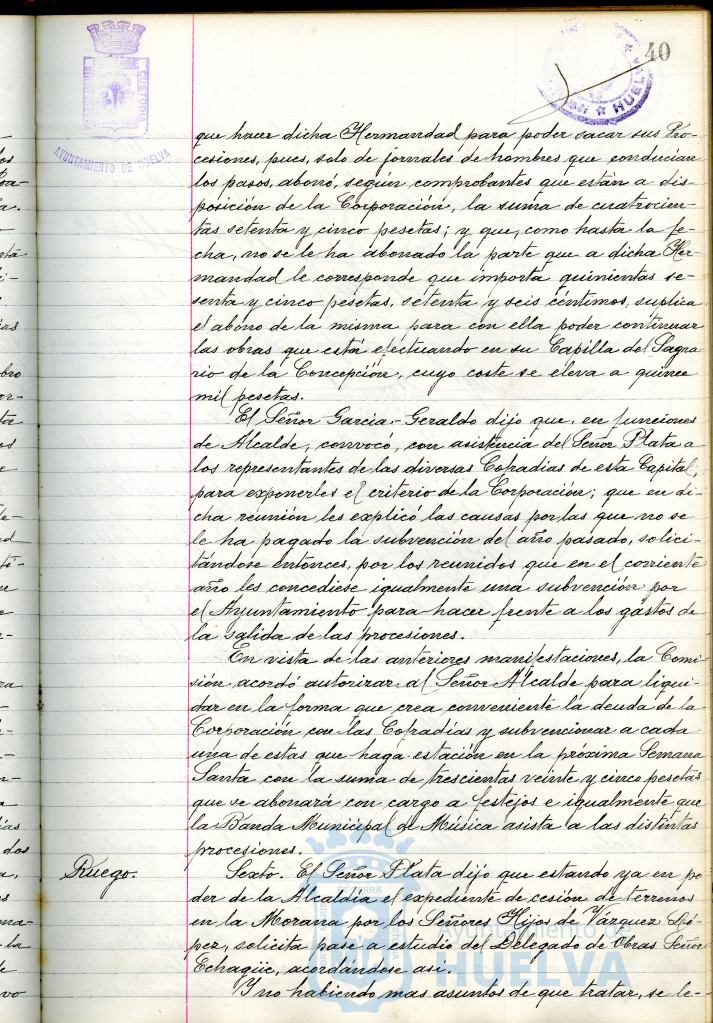 40
AYUNTAMIENTO DE HUELVA
CUSTODIA
HUELVA
que hacer dicha Hermandad para poder sacar sus Pro-
cesiones, pues, solo de jornales de hombres que conducían
los pasos, abonó, según comprobantes que están a dis-
posición de la Corporación, la suma de cuatrocien-
tas setenta y cinco pesetas; y que, como hasta la fe-
cha, no se le ha abonado la parte que a dicha Her-
mandad le corresponde que importa quinientas se-
senta y cinco pesetas, setenta y seis céntimos, suplica
el abono de la misma para con ella poder continuar
las obras que está efectuando en su Capilla del Sagra-
rio de la Concepción, cuyo coste se eleva a quince
mil pesetas.
El Señor Garcia-Geraldo dijo que, en funciones
de Alcalde, convocó, con asistencia del Señor Plata a
los representantes de las diversas Cofradias de esta Capital,
para exponerles el criterio de la Corporación; que en di-
cha reunión les explicó las causas por las que no se
le ha pagado la subvención del año pasado, solici-
tándose entonces, por los reunidos que en el corriente
año les concediese igualmente una subvención por
el Ayuntamiento para hacer frente a los gastos de
la salida de las procesiones.
En vista de las anteriores manifestaciones, la Comi-
sión acordó autorizar al Señor Alcalde para liqui-
dar en la forma que crea conveniente la deuda de la
Corporación con las Cofradías y subvencionar a cada
una de estas que haga estación en la próxima Semana
Santa con la suma de trescientas veinte y cinco pesetas
que se abonará con cargo a festejos e igualmente que
la Banda Municipal de Música asista a las distintas
procesiones.
Ruego.
Sexto. El Señor Plata dijo que estando ya en po-
der de la Alcaldía el expediente de cesión de terrenos
en la Morana por los Señores Hijos de Vázquez Ló-
pez, solicita pase a estudio del Delegado de Obras Señor
Echagüe, acordándose así.
Y no habiendo mas asuntos de que tratar, se le-
Ayuntamiento de
HUELVA